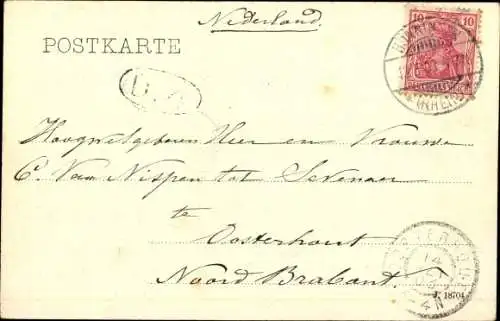 Nederland
POSTKARTE
10 10
Hoogwelgeboren Heer en Vrouwe
C. Van Nispen tot Sevenaer
te
Oosterhout
Noord Brabant.
18704